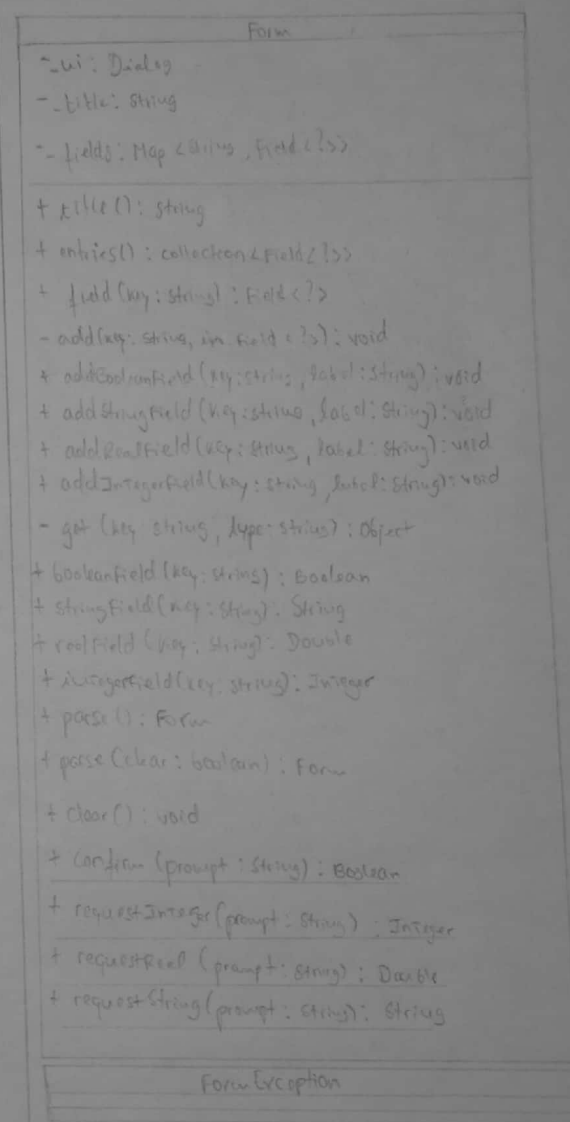 Form
- _ui : Dialog
- _title : String
- _fields : Map <String, Field <?>>
+ title() : String
+ entries() : collection <Field <?>>
+ field (key : String) : Field <?>
- add(key : String, in Field <?>) : void
+ addBooleanField (key : String, label : String) : void
+ addStringField (key : String, label : String) : void
+ addRealField (key : String, label : String) : void
+ addIntegerField (key : String, label : String) : void
- get (key String, type : String) : Object
+ booleanField (key : String) : Boolean
+ stringField (key : String) : String
+ realField (key : String) : Double
+ integerField (key : String) : Integer
+ parse () : Form
+ parse (clear : boolean) : Form
+ clear() : void
+ confirm (prompt : String) : Boolean
+ requestInteger (prompt : String) : Integer
+ requestReal (prompt : String) : Double
+ requestString (prompt : String) : String
FormException